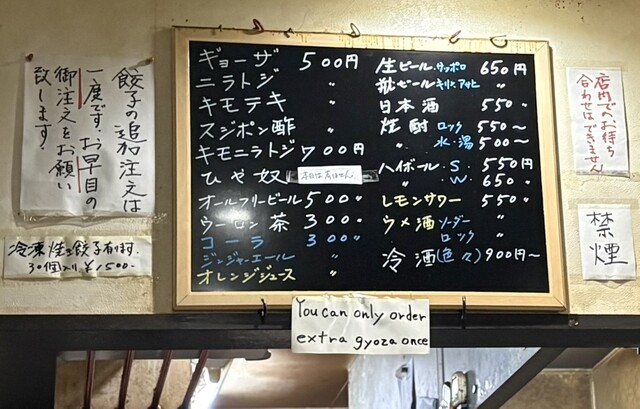 餃子の追加注文は
一度です。お早目の
御注文をお願い
致します!
冷凍焼き餃子有ります
30個入り ¥1500-
ギョーザ 500円
ニラトジ 〃
キモテキ 〃
スジポン酢 〃
キモニラトジ 700円
ひや奴 本日はありません
オールフリービール 500〃
ウーロン茶 300〃
コーラ 300〃
ジンジャーエール 〃
オレンジジュース 〃
生ビール・サッポロ 650円
瓶ビール・キリン、アサヒ 〃
日本酒 550〃
焼酎 ロック 550〜
〃 水・湯 500〜
ハイボール・S. 550円
〃 W. 650〃
レモンサワー 550〃
ウメ酒 ソーダー 〃
〃 ロック 〃
冷酒(色々) 900円〜
店内でのお待ち
合わせはできません
禁煙
You can only order
extra gyoza once